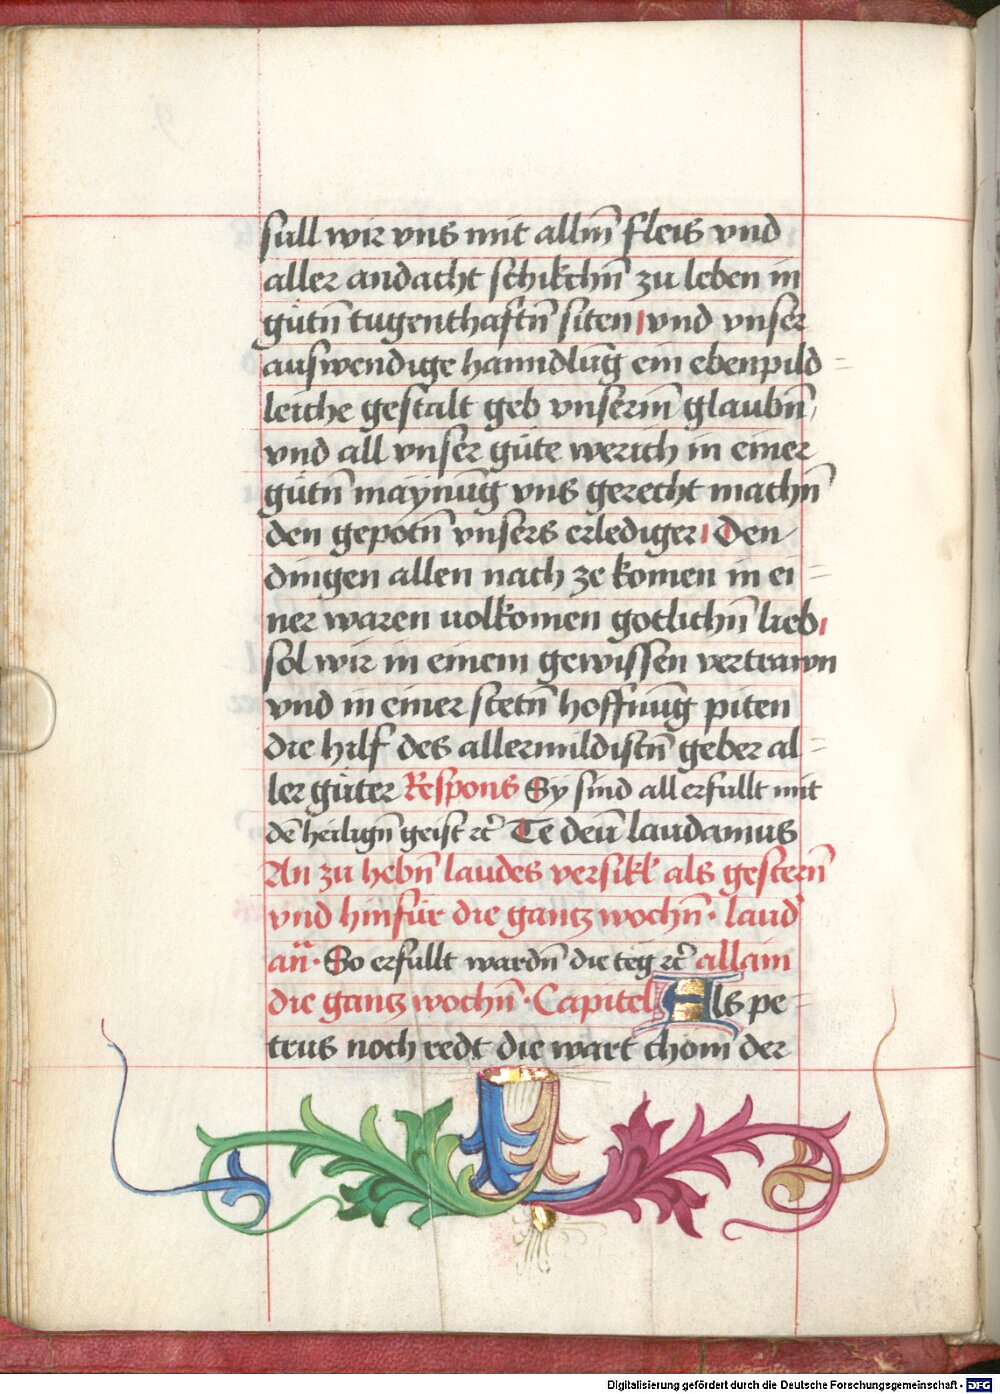 sull wir vns mit allm̄ fleis vnd
aller andacht schikchn̄ zu leben in
gůtn̄ tugenthaftn̄ siten vnd vnser
auswendige hanndlūg ein ebenpild=
leiche gestalt geb vnserm̄ glaubn̄
vnd all vnser gůte werich in einer
gůtn̄ maynūg vns gerecht machn̄
den gepotn̄ vnsers erlediger Den
dingen allen nach ze komen in ei=
ner waren uolkomen gotlichn̄ lieb
sol wir in einem gewissen vertrawn
vnd in einer stetn̄ hoffnūg piten
die hilf des allermildistn̄ geber al=
ler gůter Respons Sy sind all erfullt mit
dē heilign̄ geist ꝛc̄ Te deū laudamus
An zu hebn̄ laudes versikl als gestern̄
vnd hinfůr die gantz wochn̄· laud
an̄· So erfullt wardn̄ die teg ꝛc̄ allain
die gantz wochn̄· Capitel Als pe=
trus noch redt die wart chom der
Digitalisierung gefördert durch die Deutsche Forschungsgemeinschaft - DFG